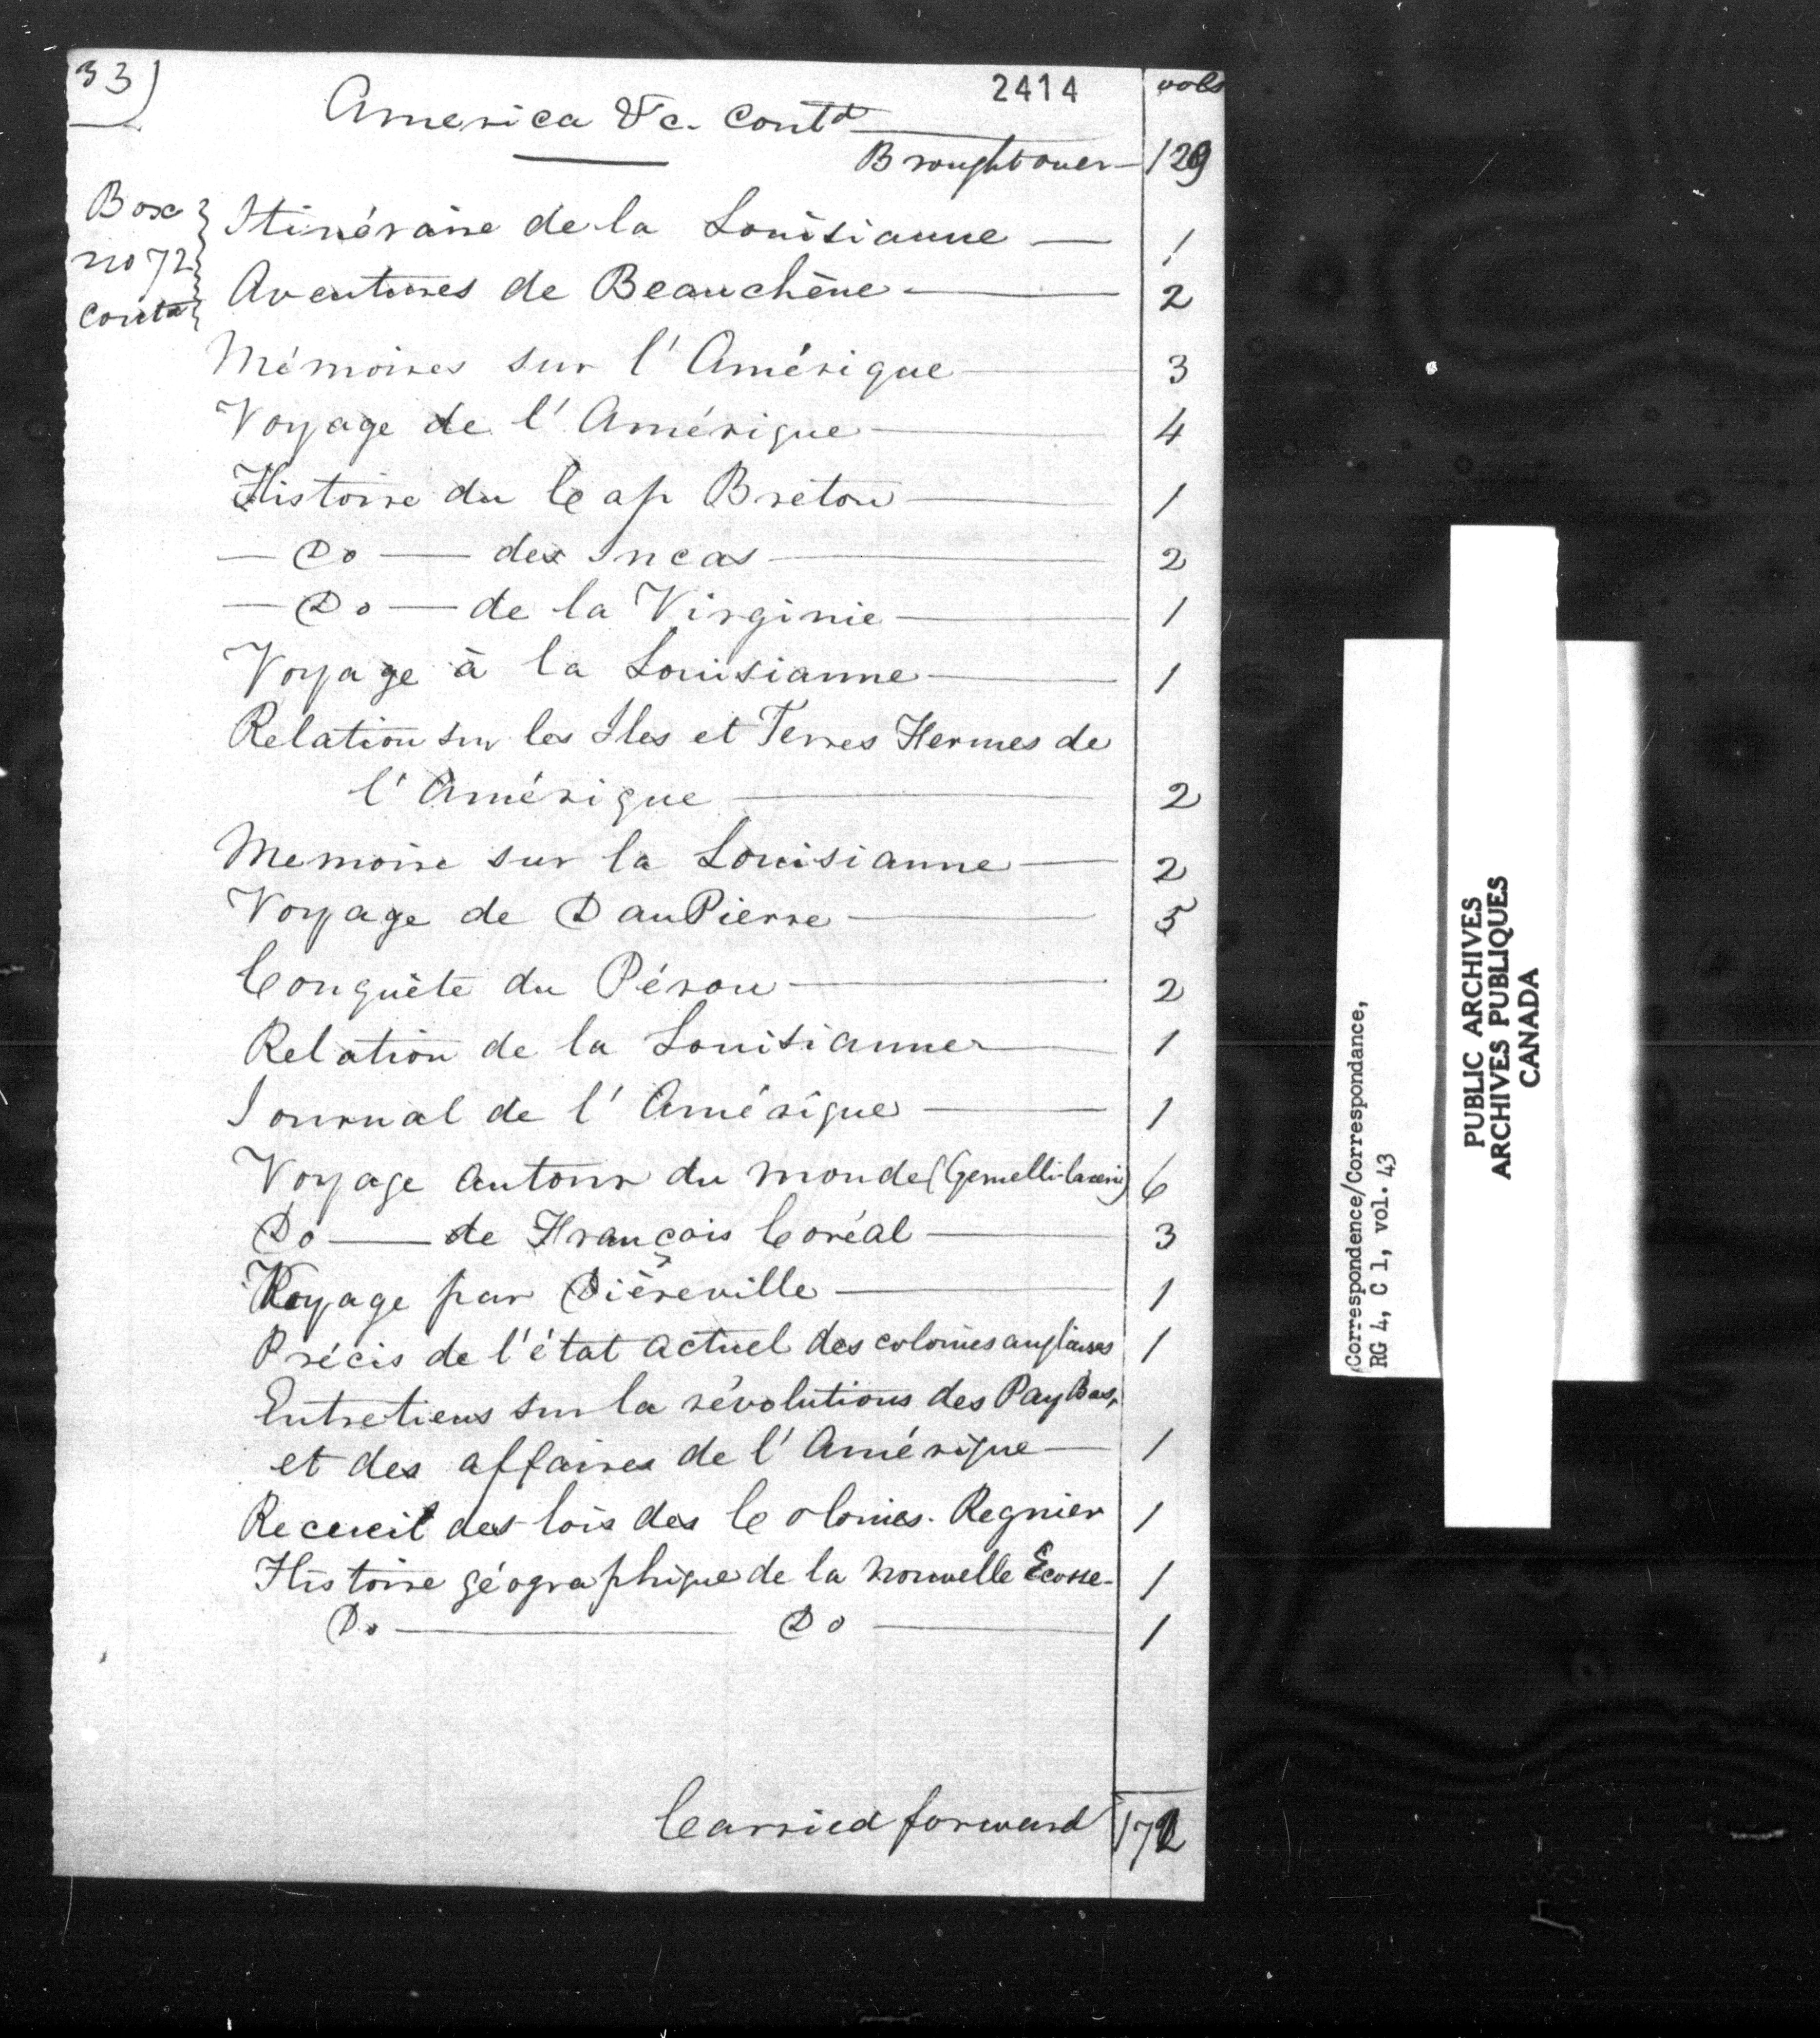 33)
2414
vols
America &c. Contd
Brought over 129
Box no 72 Contd
Itinéraire de la Louisianne — 1
Aventures de Beauchêne — 2
Mémoires sur l'Amérique — 3
Voyage de l'Amérique — 4
Histoire du Cap Breton — 1
— Do — des Incas — 2
— Do — de la Virginie — 1
Voyage à la Louisianne — 1
Relation sur les Iles et Terres Fermes de
l'Amérique — 2
Memoire sur la Louisianne — 2
Voyage de DauPierre — 5
Conquète du Pérou — 2
Relation de la Louisianne — 1
Journal de l'Amérique — 1
Voyage autour du monde (Gemelli-Careri) 6
Do — de François Coréal — 3
Voyage par Dièreville — 1
Précis de l'état actuel des colonies anglaises 1
Entretiens sur la révolutions des Pay Bas,
et des affaires de l'Amérique — 1
Receuil des lois des Colonies. Regnier 1
Histoire géographique de la nouvelle Ecosse - 1
Do — Do — 1
Carried forward 172
Correspondence/Correspondance,
RG 4, C 1, vol. 43
PUBLIC ARCHIVES
ARCHIVES PUBLIQUES
CANADA